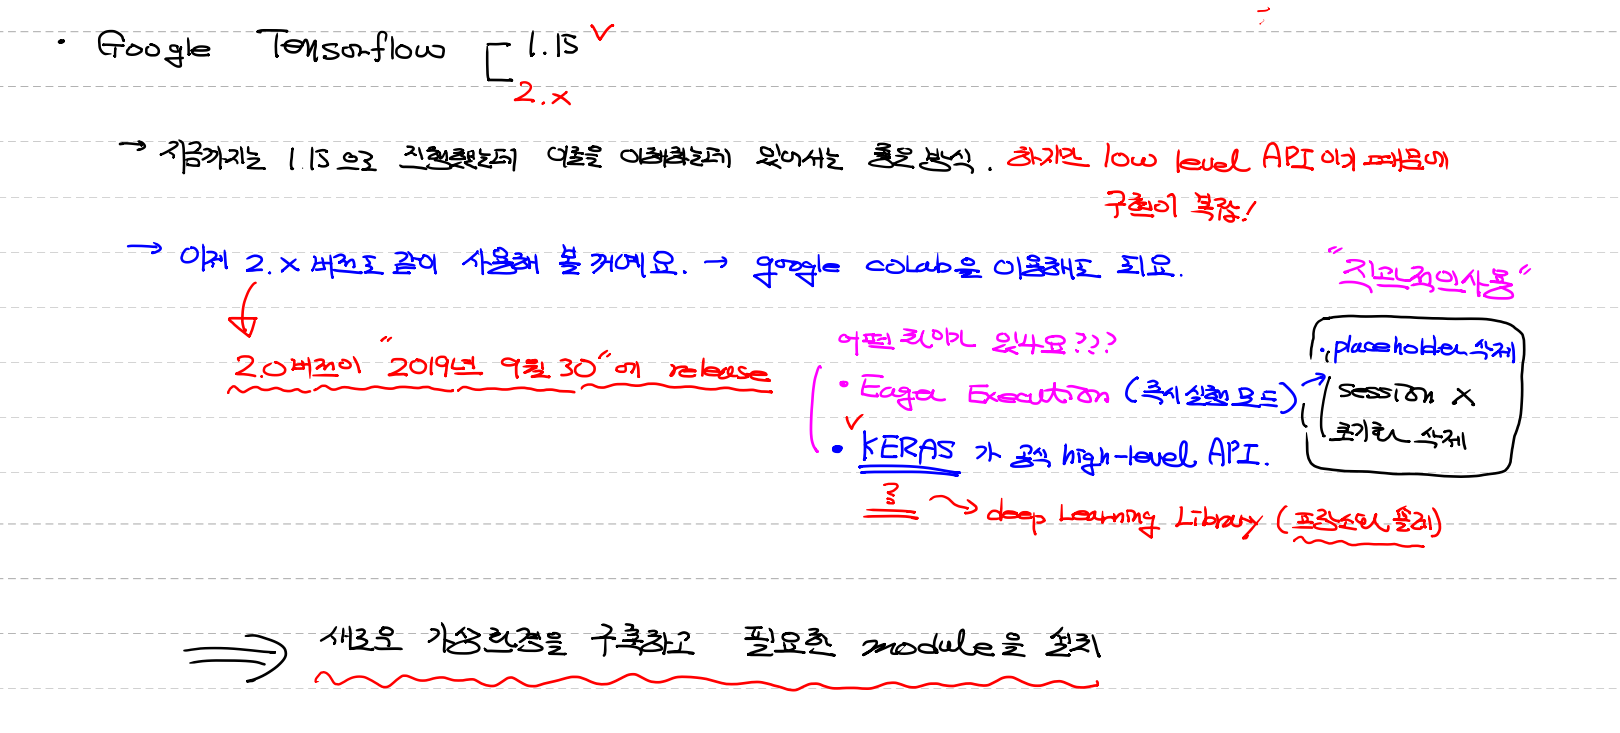 · Google Tensorflow 1.15 ✓
2.x
→ 지금까지는 1.15으로 진행했는데 이론을 이해하는데 있어서는 좋은 방식. 하지만 low level API이기 때문에
구현이 복잡!
→ 이제 2.x 버전도 같이 사용해 볼 거예요. → google colab을 이용해도 되요.
"직관적인사용"
2.0버전이 "2019년 9월 30"에 release
어떤 차이가 있나요???
· Eager Execution (즉시실행모드)
· placeholder 삭제
session x
초기화 삭제
✓
· KERAS 가 공식 high-level API.
→ deep Learning Library (프랑소와 숄레)
⇒ 새로운 가상환경을 구축하고 필요한 module을 설치